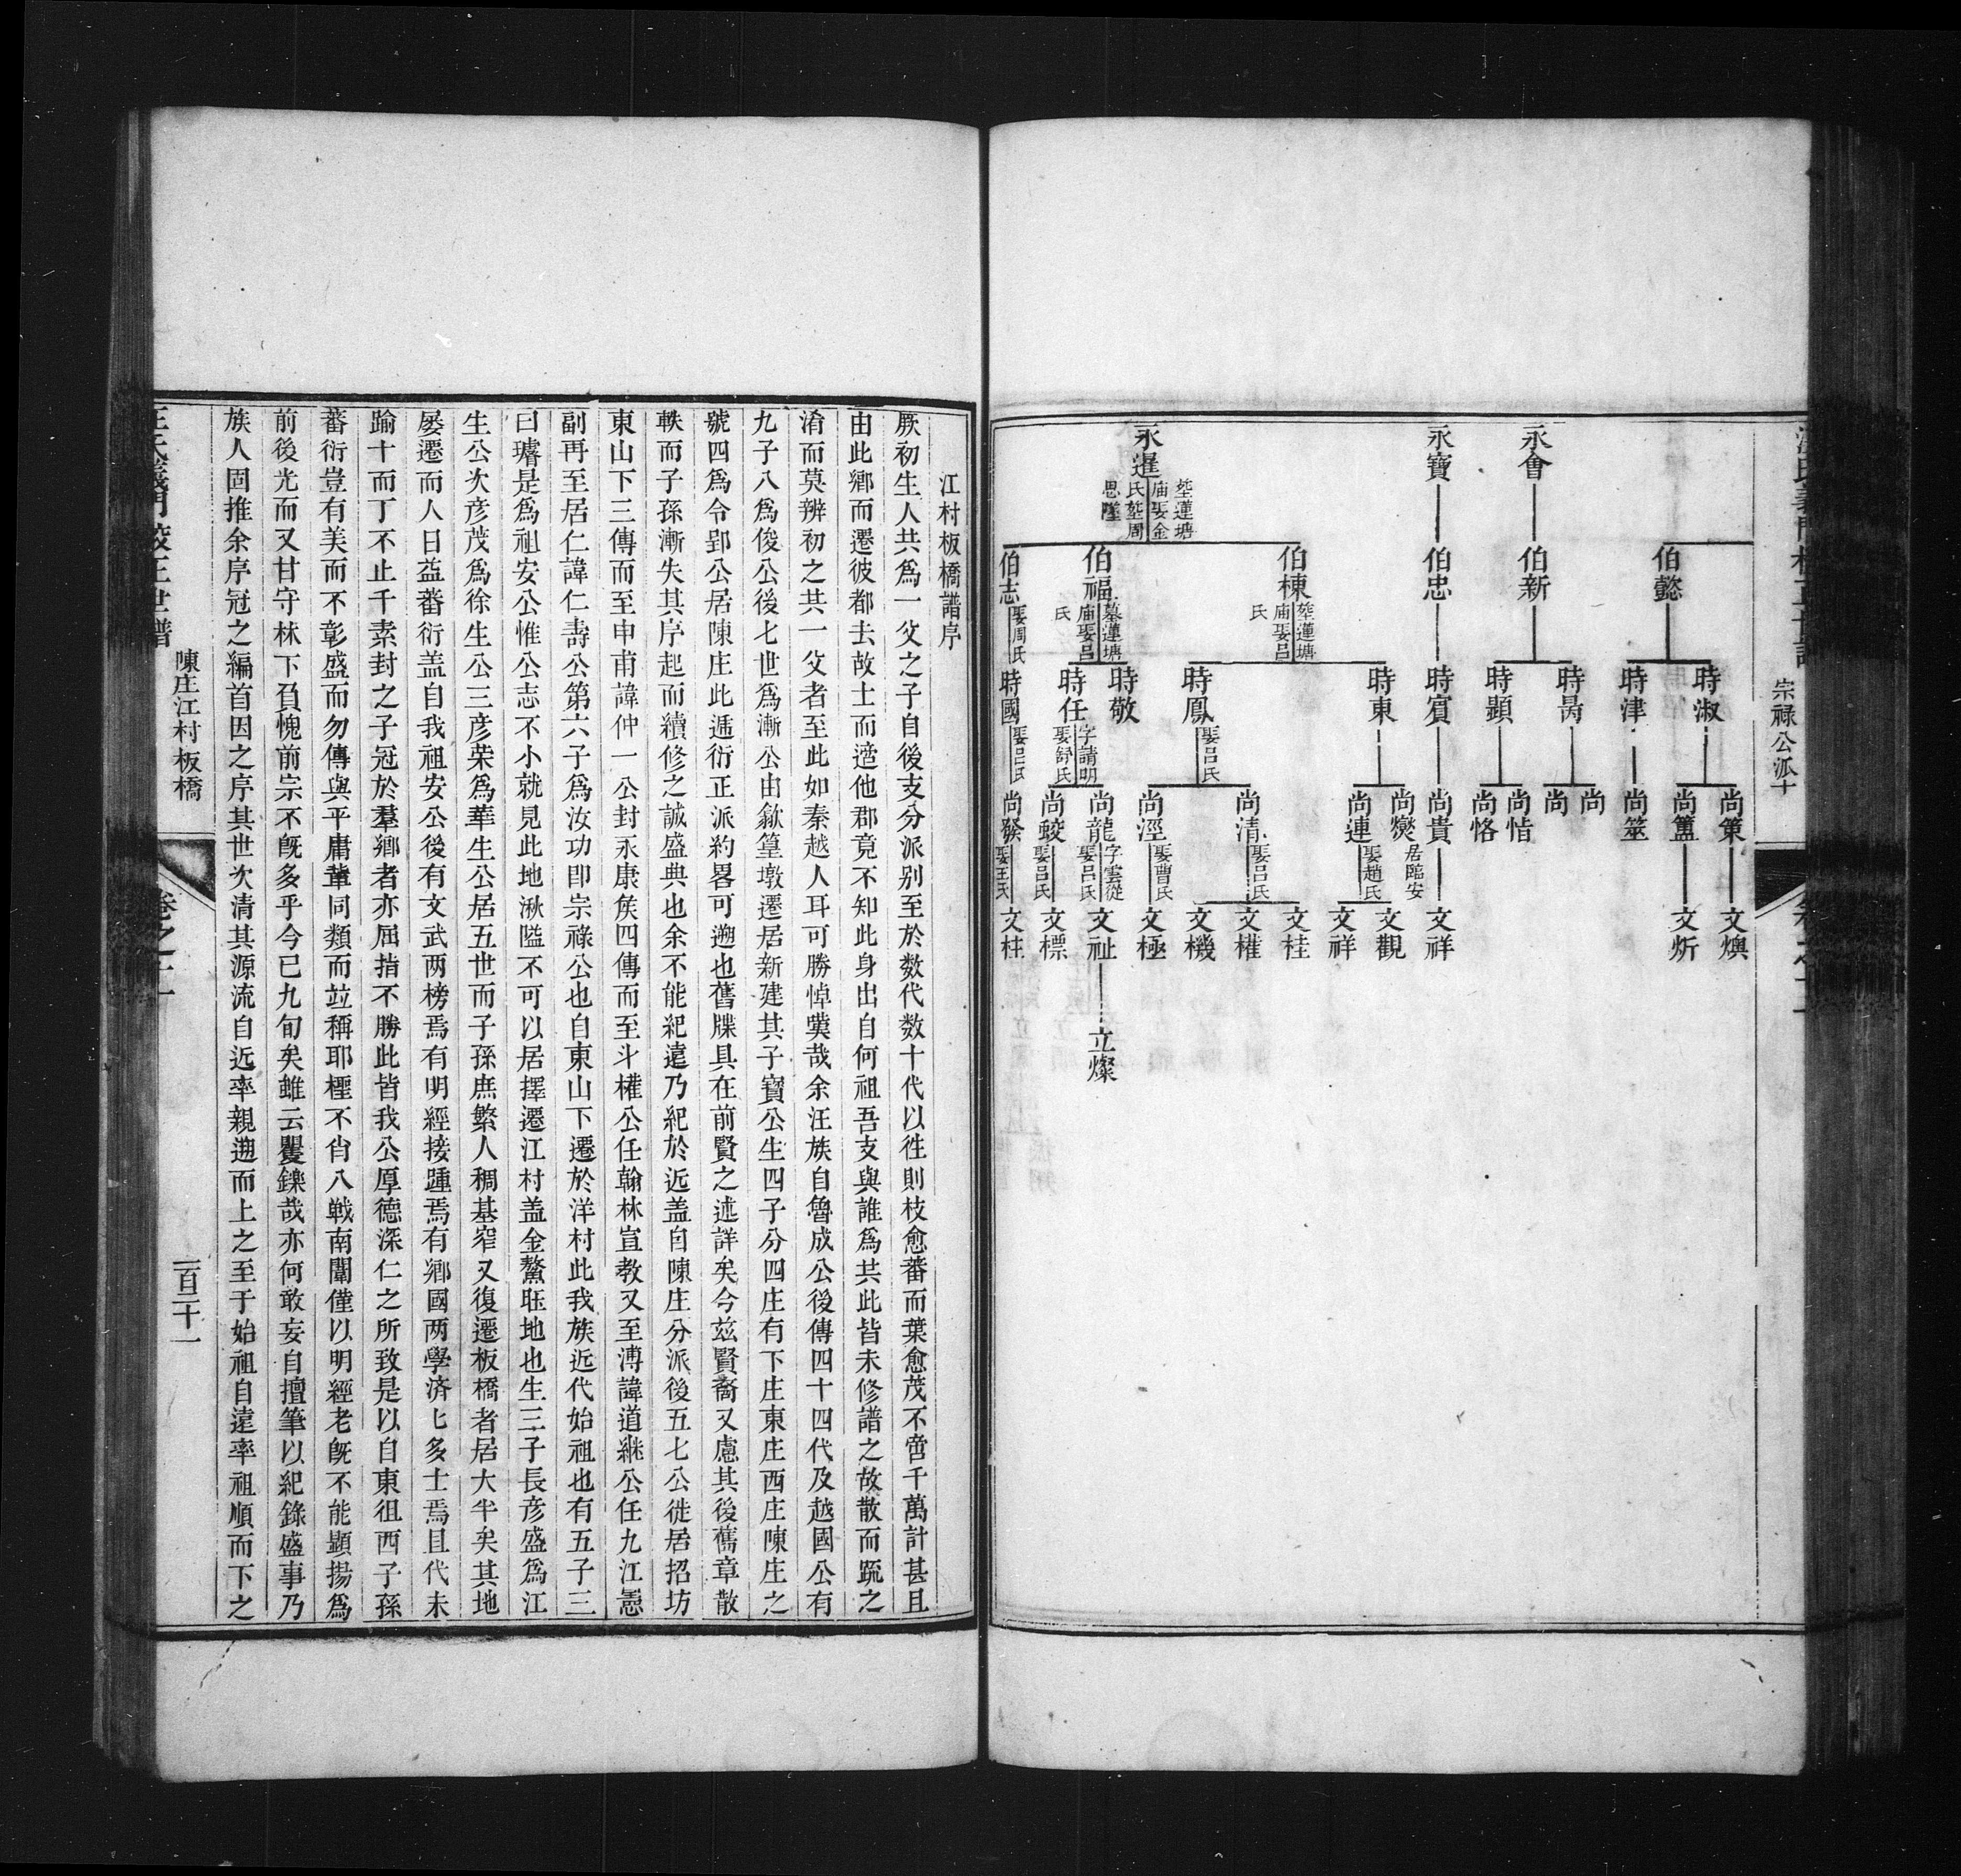 宗祿公派十
永會
永寶
永暹
塟蓮塘
庙娶金
氏塟周
思塰
伯懿
伯新
伯忠
伯棟
塟蓮塘
庙娶呂
氏
伯福
墓蓮塘
庙娶呂
氏
伯志
娶周氏
時淑
時津
時昺
時顯
時賓
時東
時鳳
娶呂氏
時敬
時任
字請明
娶舒氏
時國
娶呂氏
尚策
尚簠
尚筮
尚
尚
尚惜
尚恪
尚貴
尚爕
居臨安
尚連
娶趙氏
尚清
娶呂氏
尚涇
娶曹氏
尚龍
字雲從
娶呂氏
尚蛟
娶呂氏
尚發
娶王氏
文燠
文炘
文祥
文觀
文祥
文桂
文權
文機
文極
文祉
文標
文柱
立燦
江村板橋譜序
厥初生人共爲一父之子自後支分派别至於数代数十代以徃則枝愈蕃而葉愈茂不啻千萬計甚且
由此鄉而遷彼都去故土而適他郡竟不知此身出自何祖吾支與誰爲共此皆未修譜之故散而䟽之
淆而莫辨初之共一父者至此如秦越人耳可勝悼㦲哉余汪族自魯成公後傳四十四代及越國公有
九子八爲俊公後七世爲漸公由歙篁墩遷居新建其子寶公生四子分四庄有下庄東庄西庄陳庄之
號四爲令郢公居陳庄此逓衍正派約畧可遡也舊牒具在前賢之述詳矣今兹賢裔又慮其後舊章散
軼而子孫漸失其序起而續修之誠盛典也余不能紀遠乃紀於近盖自陳庄分派後五七公徙居招坊
東山下三傳而至申甫諱仲一公封永康矦四傳而至斗權公任翰林宣教又至溥諱道継公任九江憲
副再至居仁諱仁壽公第六子爲汝功即宗祿公也自東山下遷於洋村此我族近代始祖也有五子三
曰璿是爲祖安公惟公志不小就見此地湫隘不可以居擇遷江村盖金鰲旺地也生三子長彦盛爲江
生公次彦茂爲徐生公三彦荣爲華生公居五世而子孫庶繁人稠基窄又復遷板橋者居大半矣其地
屡遷而人日益蕃衍盖自我祖安公後有文武两榜焉有明經接踵焉有鄉國两學济匕多士焉且代未
踰十而丁不止千素封之子冠於羣鄉者亦屈指不勝此皆我公厚德深仁之所致是以自東徂西子孫
蕃衍豈有美而不彰盛而勿傳與平庸軰同類而竝稱耶樫不肖八戦南闈僅以明經老既不能顯揚爲
前後光而又甘守林下負愧前宗不既多乎今已九旬矣雖云矍鑠哉亦何敢妄自擅筆以紀錄盛事乃
族人固推余序冠之編首因之序其世次清其源流自近率親遡而上之至于始祖自遠率祖順而下之
陳庄江村板橋
一百二十一